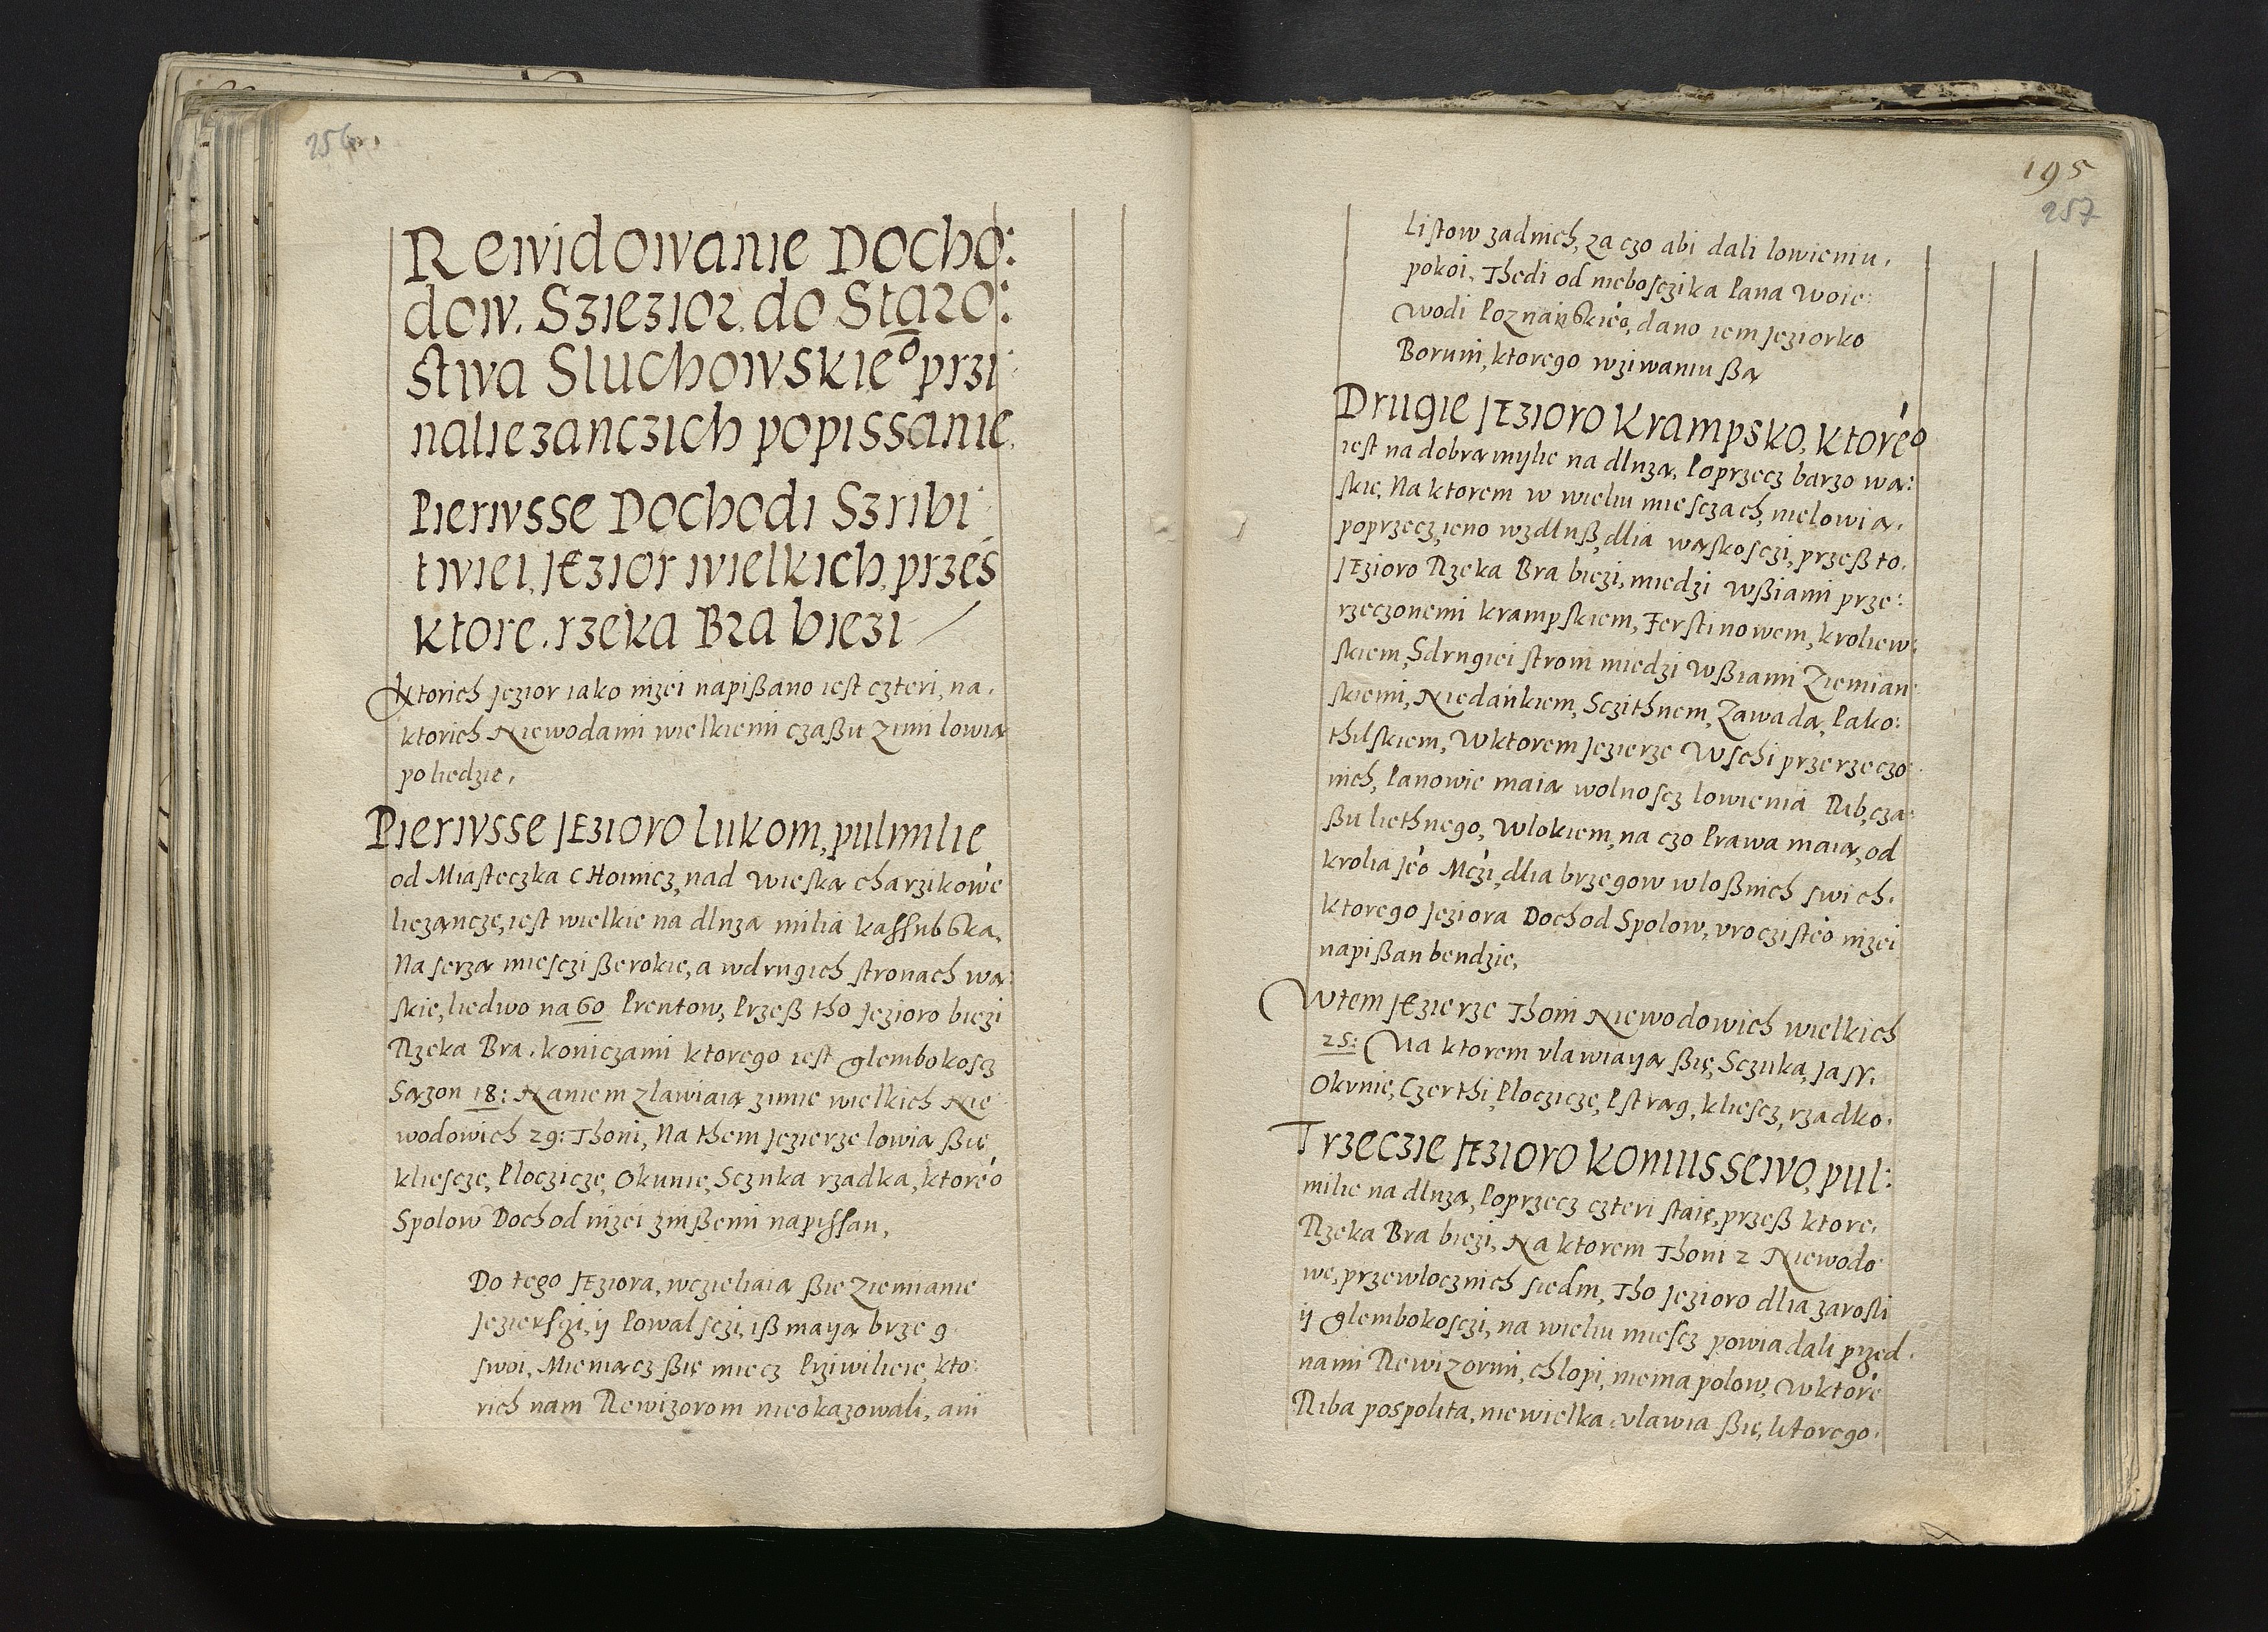 256
Rewidowanie Docho:
dow. Sziezior. do Staro:
stwa Sluchowskie° przi
naliezanczich popissanie
Pierwsse Dochodi Szribi
twiei, Jezior wielkich, przes
ktore. rzeka Bra biezi
ktorich Jezior iako nizei napißano iest czteri, na.
ktorich Niewodami wielkiemi czaßu zimi lowią
po liedzie.
Pierwsse Jezioro Lukom, pulmilie
od Miasteczka CHoinicz, nad wieską charzikowe
liezancze, iest wielkie na dluzą milia kassubska,
Na serzą miesczi ßerokie, a wdrugich stronach wą:
skie, liedwo na 60 Prentow, Przeß tho Jezioro biezi
Rzeka Bra. koniczami ktorego iest glembokoscz
Sązon 18: Naniem zlawiaią zimie wielkich Nie
wodowich 29: Thoni, Na them Jezierze lowią ßię
kliescze, Ploczicze, Okunie, Sczuka rzadka, ktore°
Spolow Dochod nizei znißemi napissan,
Do tego Jeziora, wczieliaią ßie ziemianie
Jezierszi, ij Powalsczi, iß maiją brzeg
swoi, Mieniącz ßię miecz Prziwilieie, kto:
rich nam Rewizorom nieokazowali, ani
195
257
Listow zadnich, za czo abi dali lowieniu,
pokoi, Thedi od nieboszczika Pana Woie:
wodi Poznańskie°, dano iem Jeziorko
Boruni, ktorego wziwaniu ßą
Drugie Jezioro Krampsko, ktore°
iest na dobrą mijlie na dluzą, Poprzecz barzo wą:
skie, Na ktorem w wieliu miesczach, nielowią.
poprzecz, ieno wzdluß, dlia wąskosczi, przeß to.
Jezioro Rzeka Bra biezi, miedzi wßiami prze:
rzeczonemi krampskiem, Ferstinowem, kroliew:
skiem, Sdrugiei stroni miedzi wßiami Ziemian
skiemi, Niedańkiem, Sczithnem, Zawadą, Pako:
thilskiem, Wktorem Jezierze Wschi przerzeczo
nich, Panowie maią wolnoscz lowienia Rib, cza:
ßu liethnego, Wlokiem, na czo Prawa maią, od
krolia Je° Mczi, dlia brzegow wloßnich swich.
ktorego Jeziora Dochod Spolow, vroczisté° nizei
napißan bendzie,
Wtem Jezierze Thoni Niewodowich wielkich
25: Na ktorem vlawiaiją ßię, Sczuka, Jasz.
Okunie, Czerthi, Ploczicze, Pstrąg, kliescz, rzadko.
Trzeczie Jezioro Koniussewo, pul:
milie na dluzą, Poprzecz czteri staię, przeß ktore.
Rzeka Bra biezi, Na ktorem Thoni z Niewodo
we, przewlocznich siedm, Tho Jezioro dlia zarosli
ij glembokosczi, na wieliu miescz powiadali przed.
nami Rewizormi, chlopi, niema polow, Wktore
Riba pospolita, niewielka, vlawia ßię, ktorego.